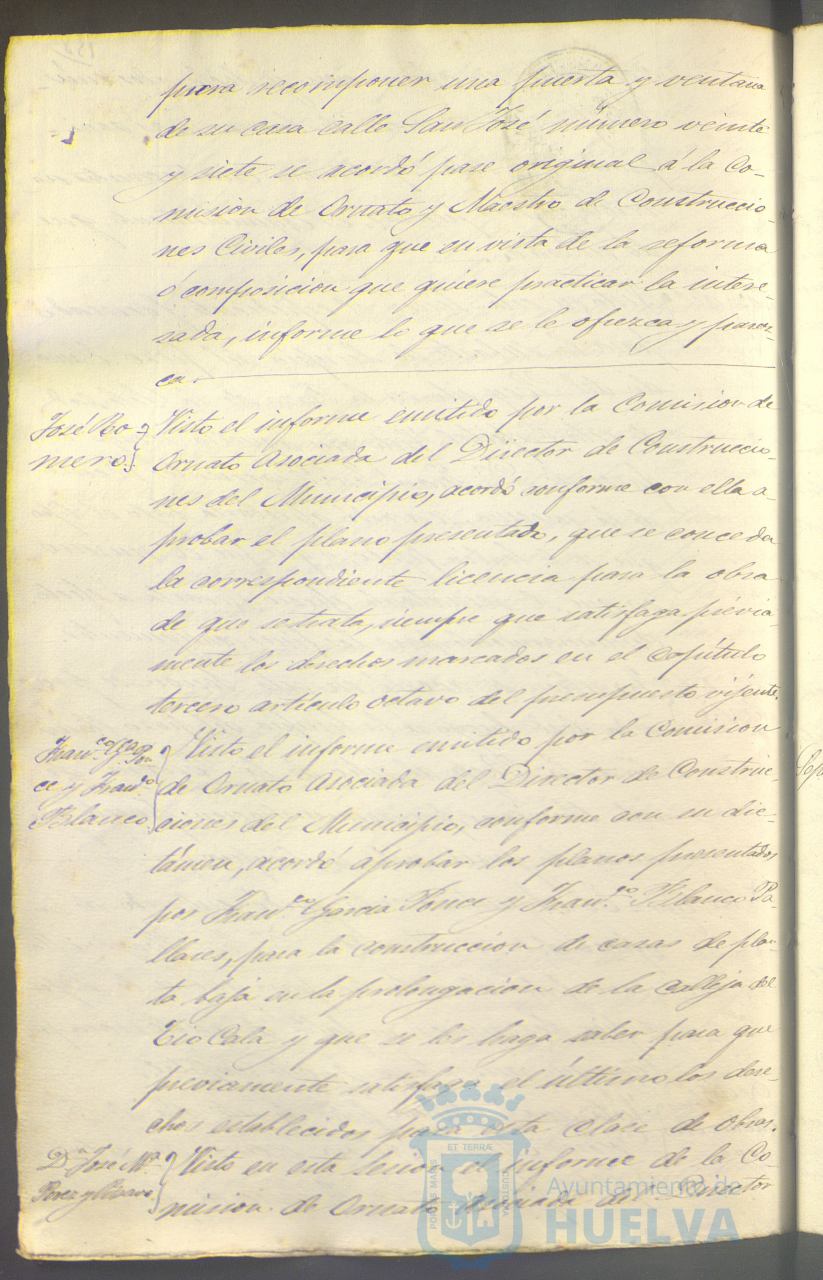 para recomponer una puerta y ventana
de su casa calle San José número veinte
y siete se acordó pase original á la Co-
misión de Ornato y Maestro de Construccio-
nes Civiles, para que en vista de la reforma
ó composicion que quiere practicar la intere-
sada, informe lo que se le ofrezca y parez-
ca.
José Ro-
mero.
Visto el informe emitido por la Comision de
Ornato Asociada del Director de Construccio-
nes del Municipio, acordó conforme con ella a-
probar el plano presentado, que se conceda
la correspondiente licencia para la obra
de que se trata, siempre que satisfaga prévia-
mente los derechos marcados en el capítulo
tercero artículo octavo del presupuesto vijente.
Franco. Gara. Pon-
ce y Franco.
Blanco
Visto el informe emitido por la Comision
de Ornato Asociada del Director de Construc-
ciones del Municipio, conforme con su dic-
támen, acordó aprobar los planos presentados
por Franco. Garcia Ponce y Franco. Blanco Pa-
llares, para la construccion de casas de plan-
ta baja en la prolongacion de la calleja del
Tio Cala y que se les haga saber para que
previamente satisfaga el último los dere-
chos establecidos para esta clase de obras.
Dn. José Ma.
Perez y
Visto en esta Sesion el informe de la Co-
mision de Ornato Asociada del Director
Ayuntamiento de
HUELVA